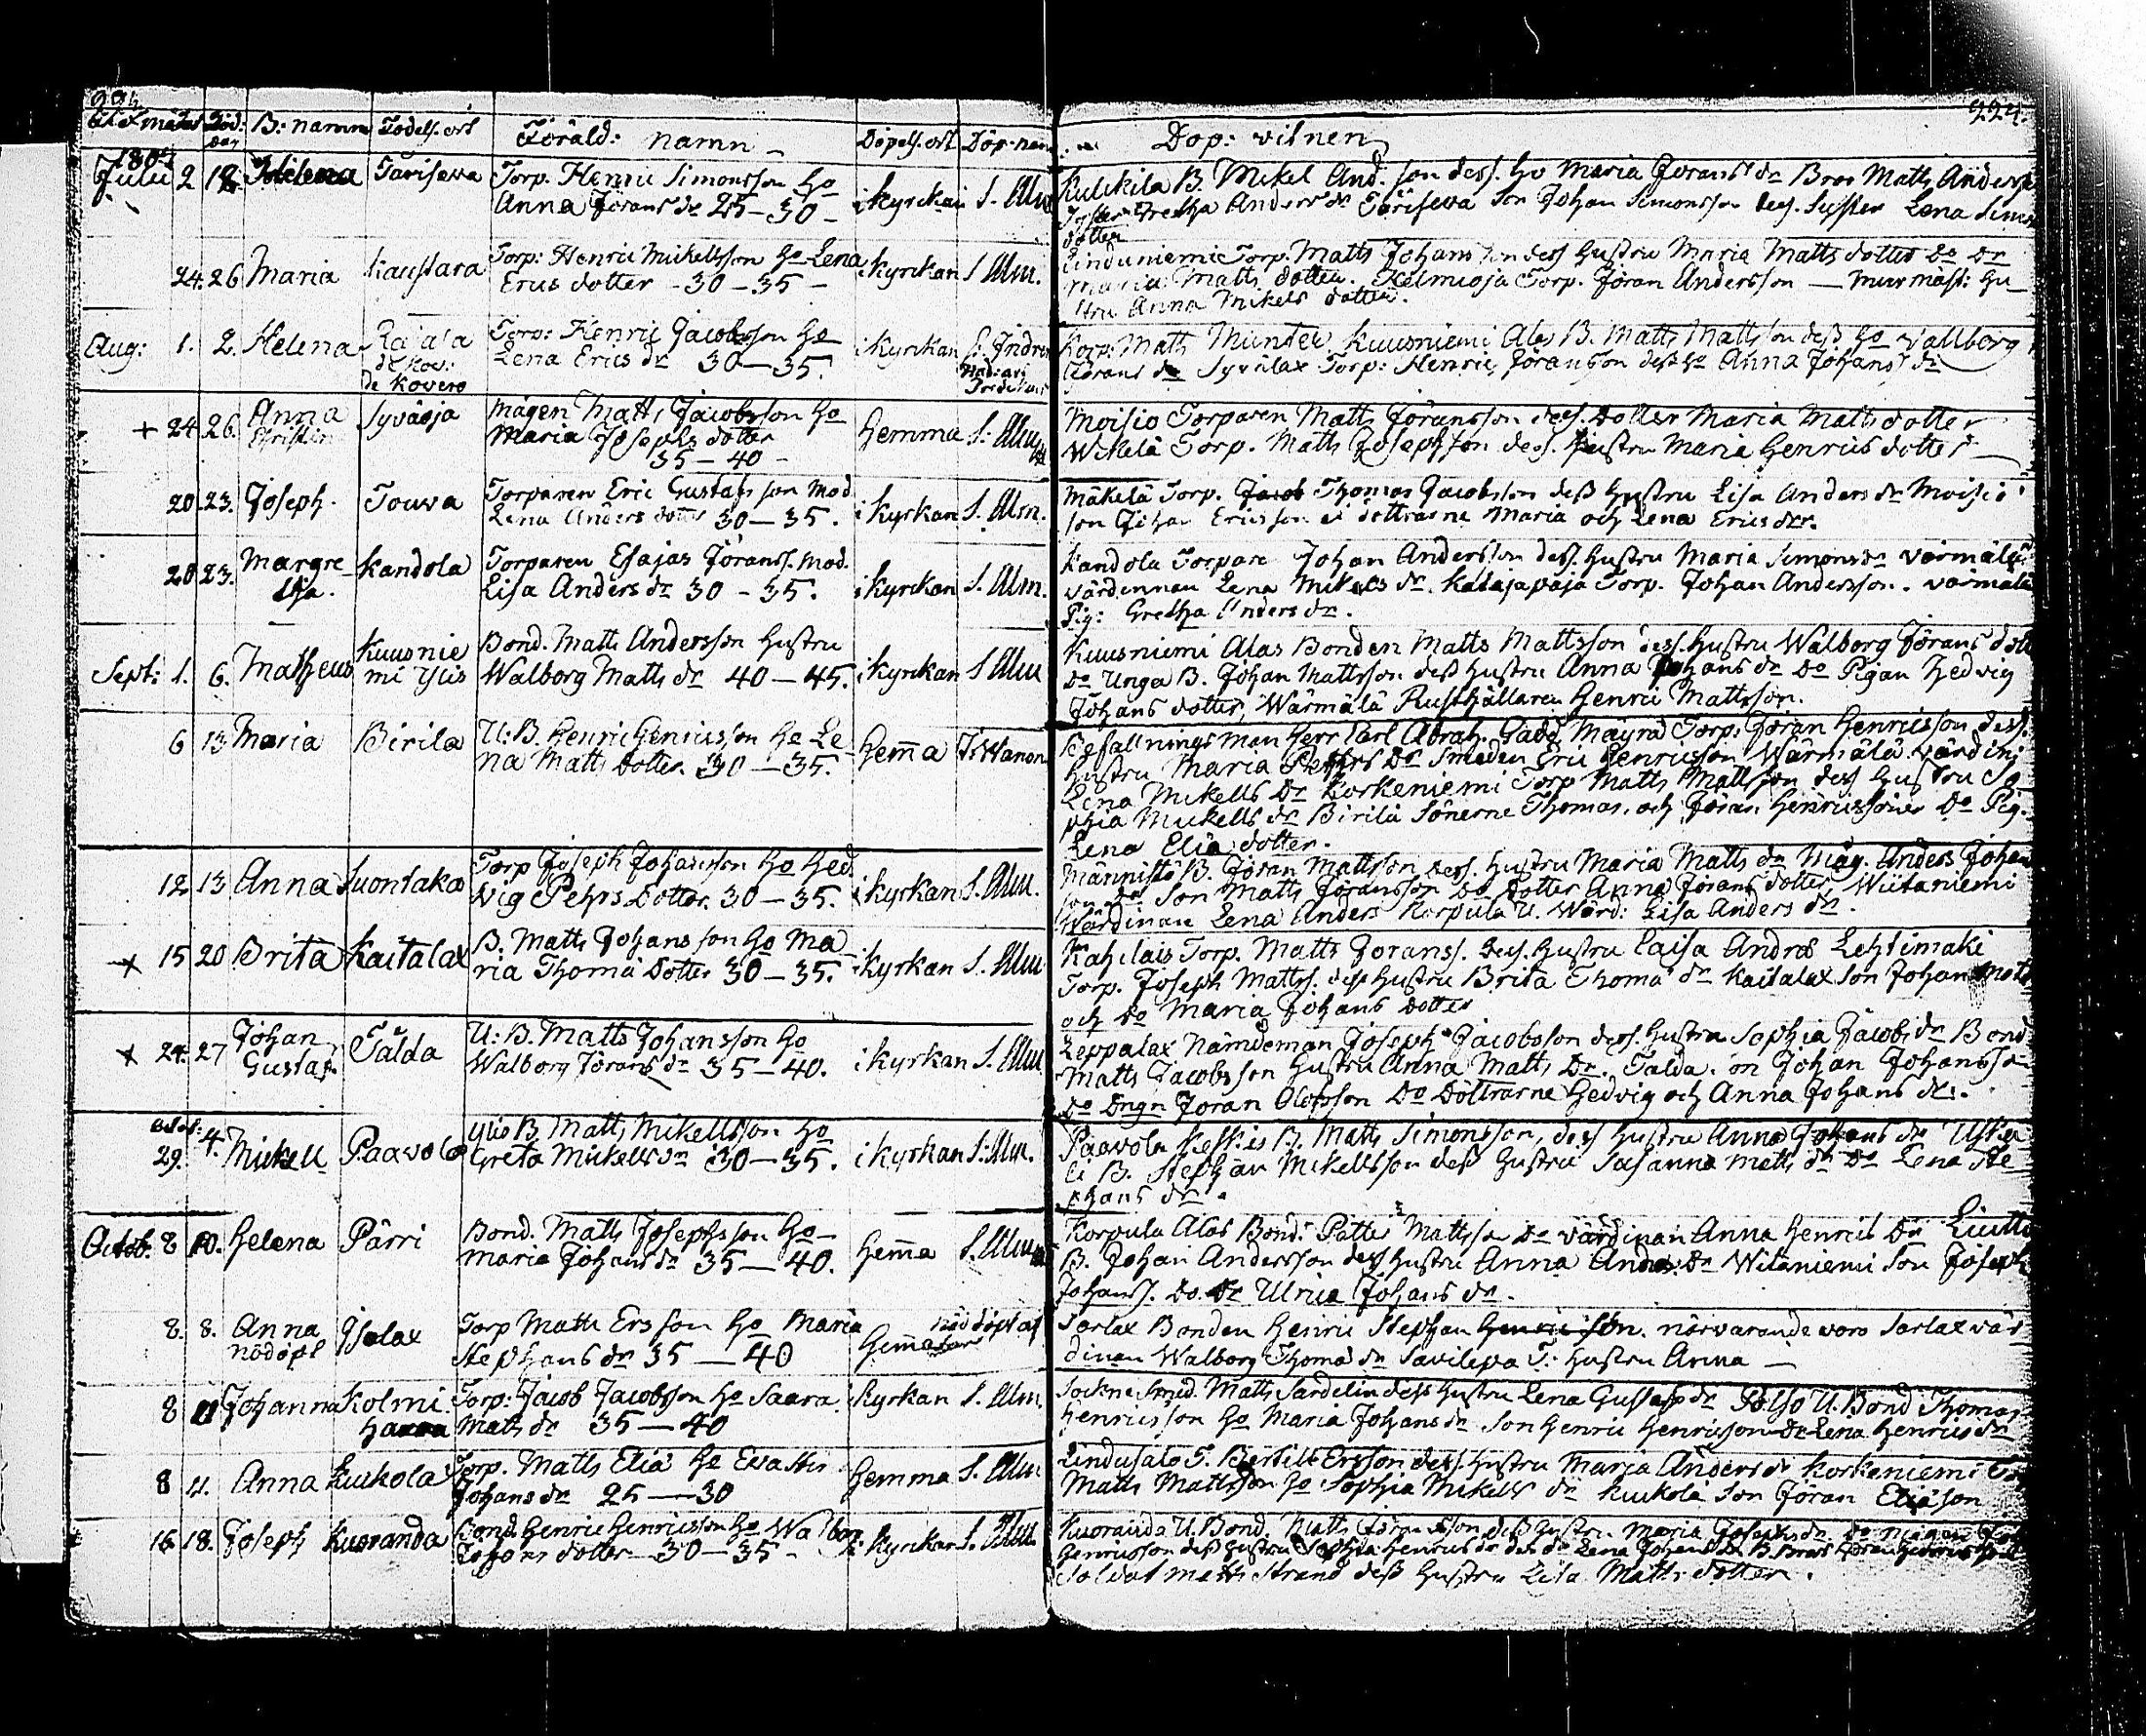 224.
B: namn Födels. ort Föräld: namn Döpels. ort Döp: nam Dop: vitnen
1805
Julii 2 12 Helena Tarisewa Torp. Henric Simonsson Ho
Anna Jörans dr 25 - 30 - i kyrckan S. Alm
Kulckila B. Mickel And: son dess. Ho Maria Jörans dr Bror Matts Anders
Gretha Anders dr Tariseva Son Johan Simonsson dess. Syster Lena Sim
dotter
24. 26 Maria Kaustara Torp: Henric Mickellsson Ho Lena
Erics dotter - 30 - 35 - i kyrckan S Alm.
Linduniemi Torp. Matts Johansson dess Hustru Maria Matts dotter Do Dr
Maria Matts dotter. Helmioja Torp. Jöran Andersson — murmäst: Hu
stru Anna Mickels dotter.
Aug: 1. 2. Helena Rajala
de Kovero
Torp: Henric Jacobsson Ho
Lena Erics dr 30 — 35. i kyrckan
Korp: Matts Munter Kuusniemi Alas B. Matts Mattsson dess Ho Vallborg
Jörans dr Syvälax Torp: Henric Jöransson dess Ho Anna Johans dr
+ 24. 26. Anna
Christin
Syväoja Mågen Matts Jacobsson Ho
Maria Josephs dotter
35 — 40 - Hemma S: Alm
Moisio Torparen Matts Jöransson dess. Dotter Maria Matts dotter
Wikelä Torp. Matts Josephson dess. hustru Maria Henrics dotter
20. 23. Joseph. Touva Torparen Eric Gustafsson Mod.
Lena Anders dotter 30 — 35. i kyrkan S. Alm.
Mäkelä Torp. Thomas Jacobsson dess Hustru Lisa Anders dr Moisio
son Johan Ericsson döttrarne Maria och Lena Erics dr.
20 23. Margre
Lisa.
Kandola Torparen Esajas Jöranss. Mod.
Lisa Anders dr 30 - 35. i kyrkan S. Alm.
Kandola Torpare Johan Andersson dess. hustru Maria Simons dr Värmälä
värdinnan Lena Mickels dr. Katajapaja Torp. Johan Andersson. Varmälä
Pig: Gretha Anders dr.
Sept: 1. 6. Matheus Kuusnie
mi Ylis
Bond. Matts Andersson Hustru
Walborg Matts dr 40 — 45. i kyrckan S Alm
Kuusniemi Alas Bonden Matts Mattsson dess. Hustru Walborg Jörans dott
Do Unga B. Johan Mattsson dess Hustru Anna Johans dr Do Pigan Hedvig
Johans dotter, Wärmälä Rusthållaren Henric Mattsson.
6 13 Maria Birila U: B. Henric Henricsson Ho Le
na Matts Dotter. 30 — 35. Hem̄a
Befallningsman Herr Carl Abrah. Gadd Mäyrä Torp. Jöran Henricsson dess.
Hustru Maria Dr Smeden Eric Henricsson Wärmälä värdin
Lena Mickells Dr Korkeniemi Torp Matts Mattsson dess Hustru So
phia Mickells dr Birilä Sönerne Thomas och Jöran Henricssöner Do Pig.
Lena Eliä dotter.
12 13 Anna Suontaka Torp Joseph Johansson Ho Hed
vig Pehrs Dotter. 30 — 35. i kyrkan S. Alm.
Männistö B. Jöran Mattsson Dess. Hustru Maria Matts dr Måg. Anders Johan
son Do Son Matts Jöransson Do Dotter Anna Jörans dotter, Wiitaniemi
Wärdinan Lena Anders Korpula U. Wärd: Lisa Anders dr.
+ 15 20 Brita Kaitalax B. Matts Johansson Ho Ma
ria Thoma Dotter 30 — 35. i kyrkan S. Alm
Kahilais Torp. Matts Jöranss. Dess. Hustru Caisa Andrs Lehtimaki
Torp. Joseph Mattss. dess Hustru Brita Thoma dr Kaitalax Son Johan Mats
och Do Maria Johans Dotter
+ 24. 27 Johan
Gustaf.
Talda U: B. Matts Johansson Ho
Walborg Jörans dr 35 — 40. i kyrkan S. Alm
Leppalax Nämdeman Joseph Jacobsson dess. Hustru Sophia Jacobs dr Bond
Matts Jacobsson Hustru Anna Matts Dr. Talda. son Johan Johansson
Do Dngn Jöran Olofsson Do Döttrarne Hedvig och Anna Johans dr.
29. 4. Mickell Paavola Ylis B Matts Mickellsson Ho
Greta Mickells dr 30 — 35. i kyrkan S: Alm.
Paavola Keskis B. Matts Simonsson, dess Hustru Anna Johans dr Uske
li B. Stephan Mickellsson dess Hustru Susanna Matts dr Do Lena Ste
phans dr.
Octob. 8 10. Helena Pärri Bond. Matts Josephsson Ho
Maria Johans dr 35 — 40. Hem̄a S. Alm
Korpula Alas Bond: Petter Mattsson Do värdinan Anna Henrics Dr Liutt
B. Johan Andersson dess hustru Anna Andrs. Dr Witaniemi Son Joseph
Johanss. Do. Dr Ulrica Johans dr.
8. 8. Anna
nödöpt
Isolax Torp Matts Ersson Ho Maria
Stephans dr 35 — 40 Hem̄a nöddöpt af
Sarlax Bonden Henric Stephan son. närvarande voro Sarlax vär
dinan Walborg Thoma dr Savilepa T: hustru Anna —
8 11 Johanna Kolmi
haara
Torp: Jacob Jacobsson Ho Saara
Mats dr 35 — 40 i kyrkan S. Alm.
Sockne Smed. Matts Sardelin dess hustru Lena Gustafs dr Polso U. Bond Thomas
Henricsson Ho Maria Johans dr Son Henric Henricsson Dr Lena Henrics dr
8 11. Anna Kuckola Torp. Matts Eliä Ho Eva Sti
Johans dr 25 — 30 Hemma S. Alm
Lindusalo T. Bertill Ersson dess. Hustru Maria Anders dr Korkeniemi T
Matts Mattsson Ho Sophia Mickells dr Kuckola Son Jöran Eliäson
16 18. Joseph Kuoranda Bond. Henric Henricsson Ho Walbor
Johans dotter 30 — 35 - i kyrkan S. Alm.
Kuoranda U. Bond. Matts Jöransson dess Hustru Maria Josephs dr
Henricsson dess Hustru Sophia Henrics dr Lena Johans dr
Soldat Matts Strand dess Hustru Lisa Matts dotter.